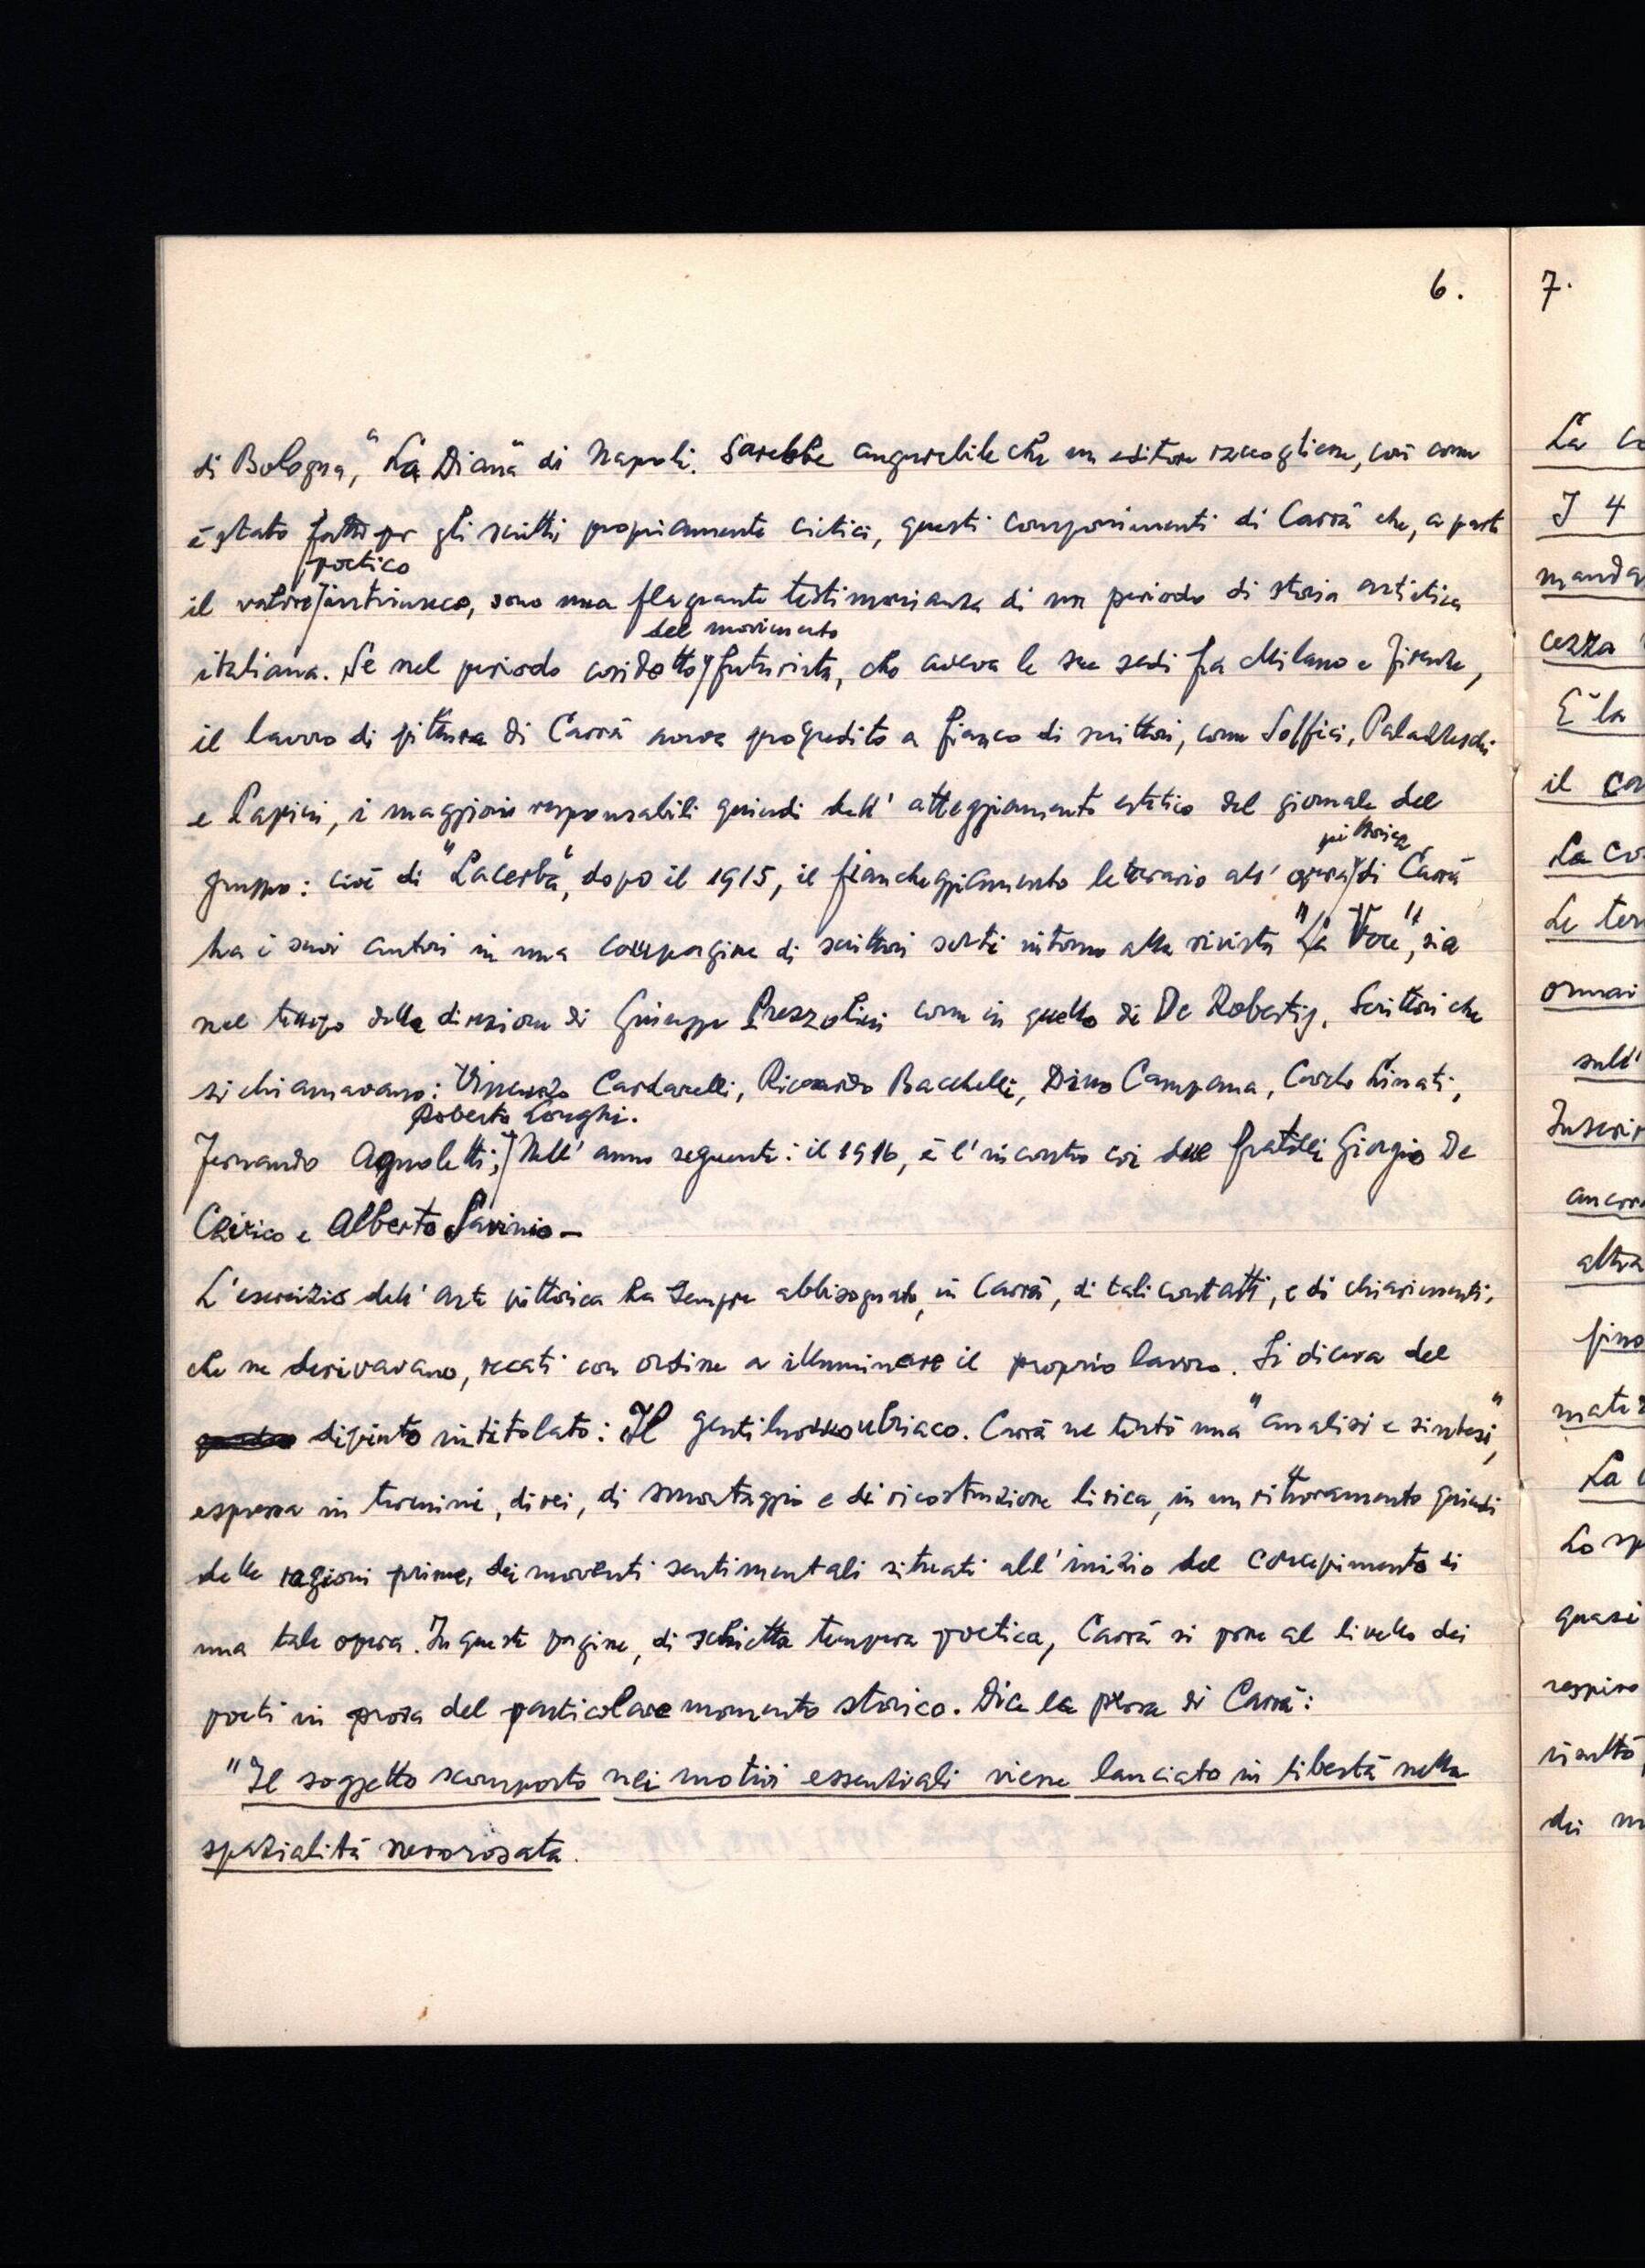 6.
di Bologna, "La Diana" di Napoli. Sarebbe augurabile che un editore raccogliesse, così come
è stato fatto per gli scritti propriamente critici, questi componimenti di Carrà che, a parte
il valore poetico intrinseco, sono una flagrante testimonianza di un periodo di storia artistica
italiana. Se nel periodo cosidetto del movimento futurista, che aveva le sue sedi fra Milano e Firenze,
il lavoro di pittura di Carrà aveva progredito a fianco di scrittori, come Soffici, Palazzeschi
e Papini, i maggiori responsabili quindi dell' atteggiamento estetico del giornale del
gruppo: cioè di "Lacerba", dopo il 1915, il fiancheggiamento letterario all' opera pittorica di Carrà
ha i suoi autori in una compagine di scrittori sorti intorno alla rivista "La Voce", sia
nel tempo della direzione di Giuseppe Prezzolini come in quello di De Robertis. Scrittori che
si chiamavano: Vincenzo Cardarelli, Riccardo Bacchelli, Dino Campana, Carlo Linati,
Fernando Agnoletti, Roberto Longhi. Nell' anno seguente: il 1916, è l' incontro coi due fratelli Giorgio De
Chirico e Alberto Savinio –
L' esercizio dell' arte pittorica ha sempre abbisognato, in Carrà, di tali contatti, e di chiarimenti,
che ne derivavano, recati con ordine a illuminare il proprio lavoro. Si diceva del
dipinto intitolato: Il gentiluomo ubriaco. Carrà ne tentò una "analisi e sintesi",
espressa in termini, direi, di smontaggio e di ricostruzione lirica, in un ritrovamento quindi
delle ragioni prime, dei moventi sentimentali situati all' inizio del concepimento di
una tale opera. In queste pagine, di schietta tempera poetica, Carrà si pone al livello dei
poeti in prosa del particolare momento storico. Dice la prosa di Carrà:
"Il soggetto scomposto nei motivi essenziali viene lanciato in libertà nella
spazialità nevorosata.
7.
La
I 4
cezza
E' la
il
La
Le
ormai
sull'
altra
La
quasi